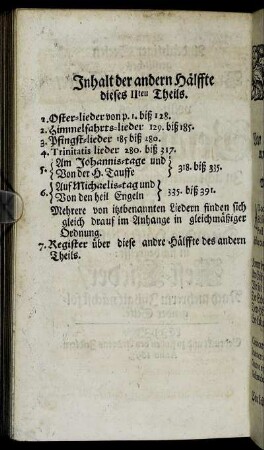 Inhalt der andern Hälffte
dieses IIten Theils.
1. Oster-lieder von p. 1. biß 128.
2. Himmelfahrts-lieder 129. biß 185.
3. Pfingst-lieder 185 biß 280.
4. Trinitatis lieder 280. biß 317.
5. { Am Johannis-tage und
Von der H. Tauffe } 318. biß 335.
6. { Auf Michaelis-tag und
Von den heil Engeln } 335. biß 391.
Mehrere von itztbenannten Liedern finden sich
gleich drauf im Anhange in gleichmäßiger
Ordnung.
7. Register über diese andre Hälffte des andern
Theils.